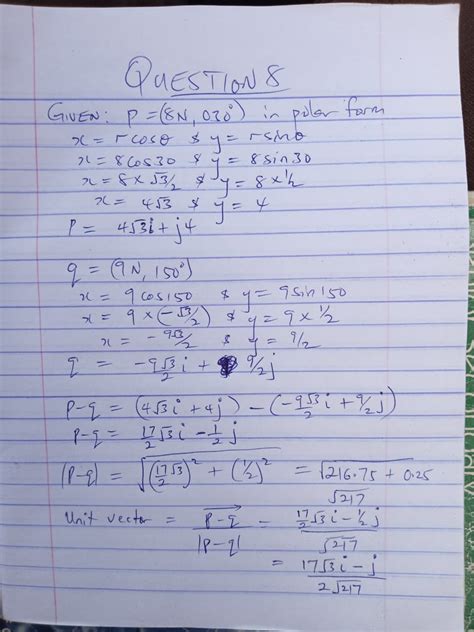 QUESTION 8
GIVEN: P = (8N, 030°) in polar form
x = rcosθ & y = rsinθ
x = 8cos30 & y = 8sin30
x = 8 × √3/2 & y = 8 × 1/2
x = 4√3 & y = 4
P = 4√3i + j4
q = (9N, 150°)
x = 9cos150 & y = 9sin150
x = 9 × (-√3/2) & y = 9 × 1/2
x = -9√3/2 & y = 9/2
q = -9√3/2 i + 9/2 j
P-q = (4√3i + 4j) - (-9√3/2 i + 9/2 j)
P-q = 17/2 √3 i - 1/2 j
|P-q| = √((17√3/2)² + (1/2)²) = √216.75 + 0.25
√217
Unit vector = P-q / |P-q| = 17/2 √3 i - 1/2 j / √217
= 17√3 i - j / 2√217